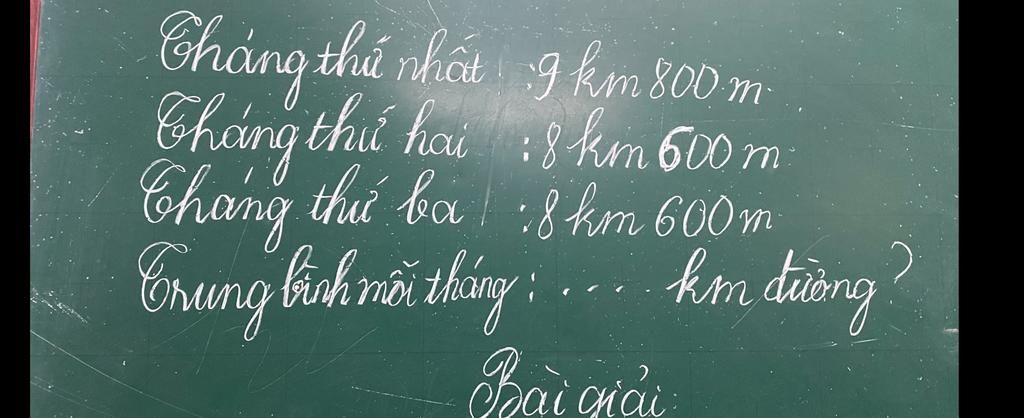 Tháng thứ nhất : 9 km 800 m
Tháng thứ hai : 8 km 600 m
Tháng thứ ba : 8 km 600 m
Trung bình mỗi tháng : ..... km đường ?
Bài giải